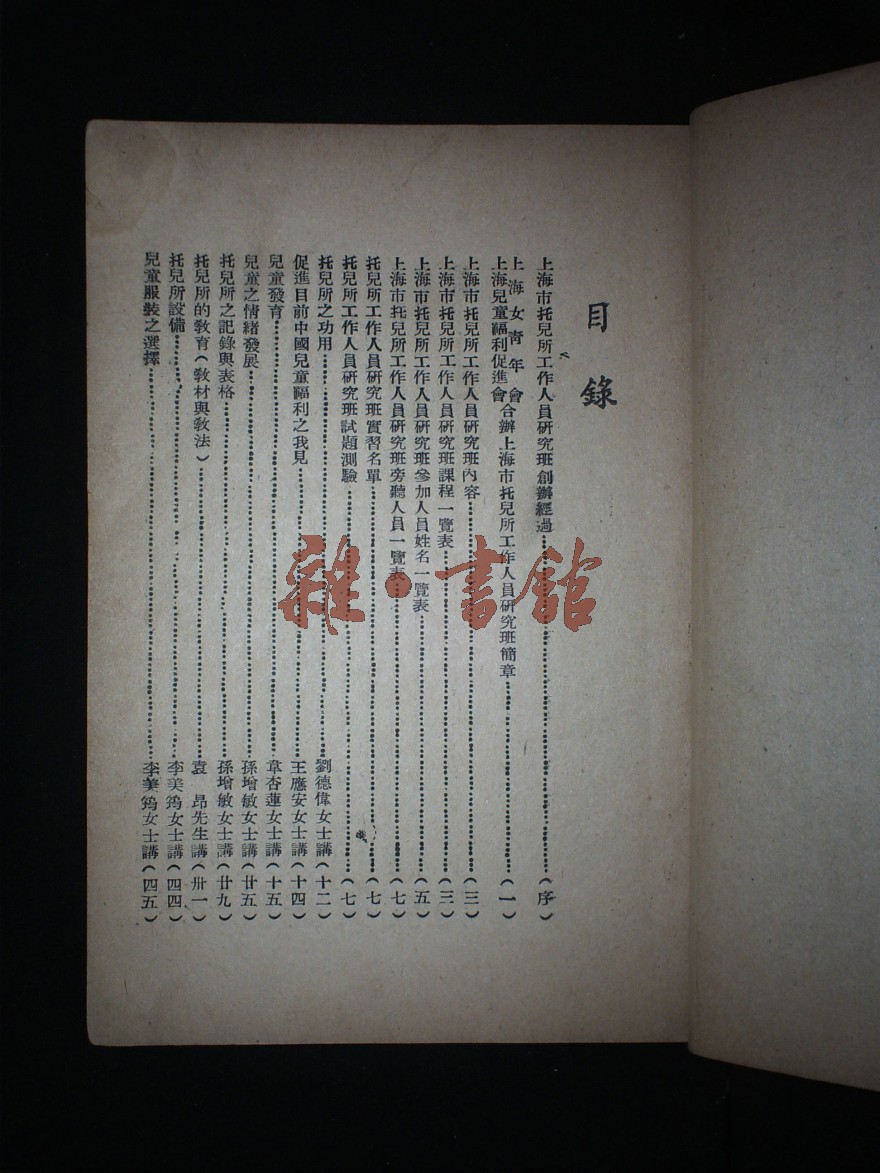 目錄
上海市托兒所工作人員研究班創辦經過……(序)
上海女青年會
上海兒童福利促進會合辦上海市托兒所工作人員研究班簡章……(一)
上海市托兒所工作人員研究班內容……(三)
上海市托兒所工作人員研究班課程一覽表……(三)
上海市托兒所工作人員研究班參加人員姓名一覽表……(五)
上海市托兒所工作人員研究班旁聽人員一覽表……(七)
托兒所工作人員研究班實習名單……(七)
托兒所工作人員研究班試題測驗……(七)
托兒所之功用……劉德偉女士講(十二)
促進目前中國兒童福利之我見……王應安女士講(十四)
兒童發育……韋杏蓮女士講(十五)
兒童之情緒發展……孫增敏女士講(廿五)
托兒所之記錄與表格……孫增敏女士講(廿九)
托兒所的敎育(敎材與敎法)……袁昂先生講(卅一)
托兒所設備……李美筠女士講(四四)
兒童服裝之選擇……李美筠女士講(四五)
雜·書館